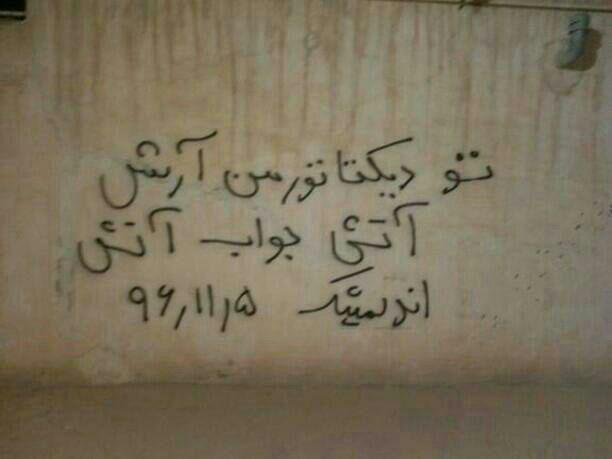 تو دیکتاتور من آرش
آتش جواب آتش
اندیمشک ۹۶٫۱۱٫۵